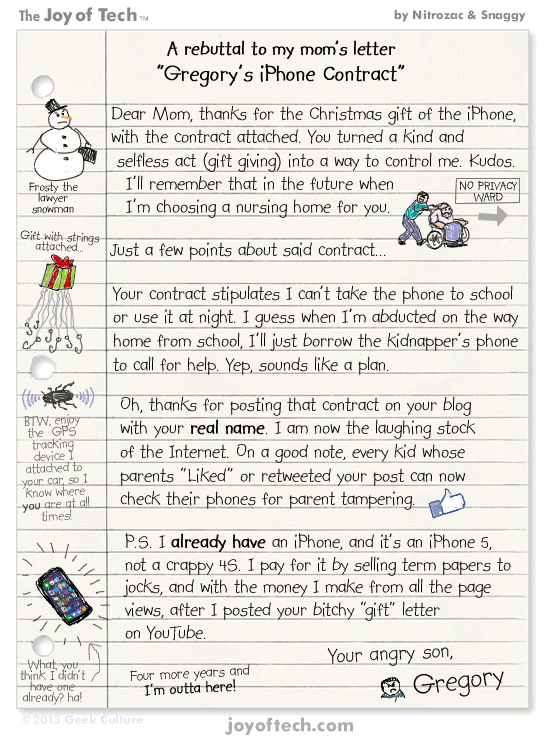 The Joy of Tech™
by Nitrozac & Snaggy
A rebuttal to my mom's letter
"Gregory's iPhone Contract"
Dear Mom, thanks for the Christmas gift of the iPhone,
with the contract attached. You turned a kind and
selfless act (gift giving) into a way to control me. Kudos.
I'll remember that in the future when
I'm choosing a nursing home for you.
NO PRIVACY
WARD
Frosty the
lawyer
snowman
Just a few points about said contract...
Gift with strings
attached...
Your contract stipulates I can't take the phone to school
or use it at night. I guess when I'm abducted on the way
home from school, I'll just borrow the kidnapper's phone
to call for help. Yep, sounds like a plan.
Oh, thanks for posting that contract on your blog
with your real name. I am now the laughing stock
of the Internet. On a good note, every kid whose
parents "Liked" or retweeted your post can now
check their phones for parent tampering.
BTW, enjoy
the GPS
tracking
device I
attached to
your car, so I
know where
you are at all
times!
P.S. I already have an iPhone, and it's an iPhone 5,
not a crappy 4S. I pay for it by selling term papers to
jocks, and with the money I make from all the page
views, after I posted your bitchy "gift" letter
on YouTube.
What, you
think I didn't
have one
already? ha!
Your angry son,
Gregory
Four more years and
I'm outta here!
© 2013 Geek Culture
joyoftech.com